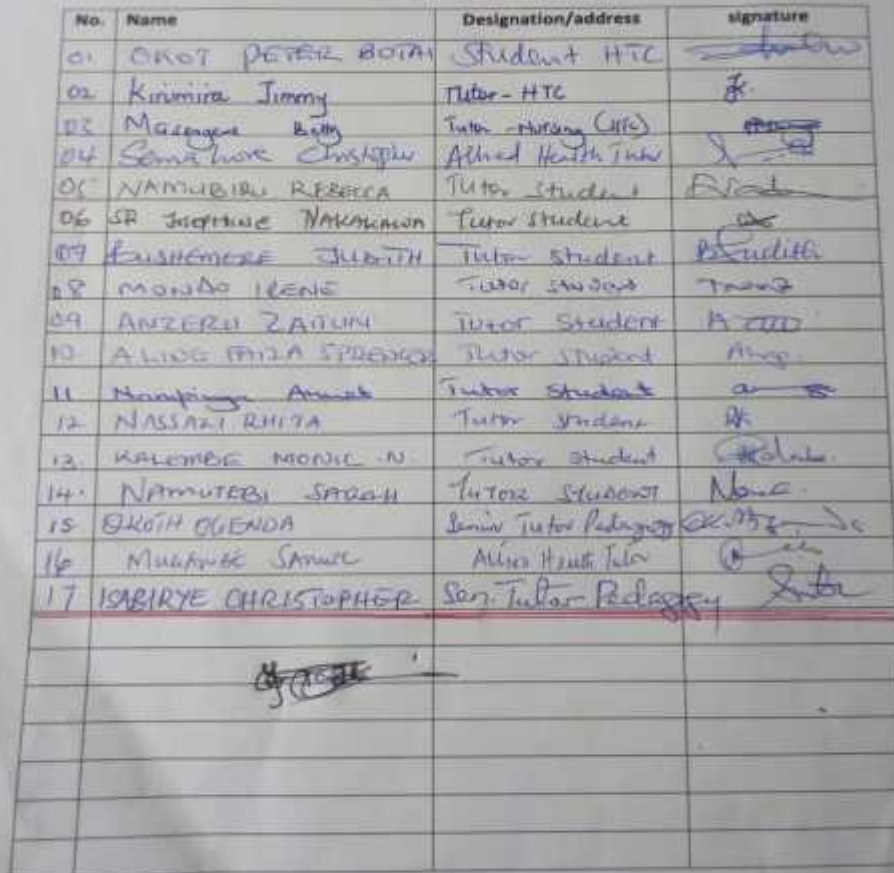 No. Name Designation/address signature
01 OKOT PETER BOTAI Student HTC
02 Kirumira Jimmy Tutor - HTC
03 Betty Tutor - Nursing (HTC)
04 Christopher Allied Health Tutor
05 NAMUBIRU REBECCA Tutor Student
06 SR Josephine NAKAKAWA Tutor Student
07 JUDITH Tutor Student BJudith
08 MONDO IRENE Tutor Student
09 ANZERU ZAITUN Tutor Student
10. FAIZA Tutor Student
11 Tutor Student
12. NASSAZI RHITA Tutor Student
13. KALEMBE MONIC .N. Tutor Student
14. NAMUTEBI SARAH Tutor Student
15 OKOTH OGENDA Senior Tutor Pedagogy
16 Allied Health Tutor
17 ISABIRYE CHRISTOPHER Sen. Tutor Pedagogy